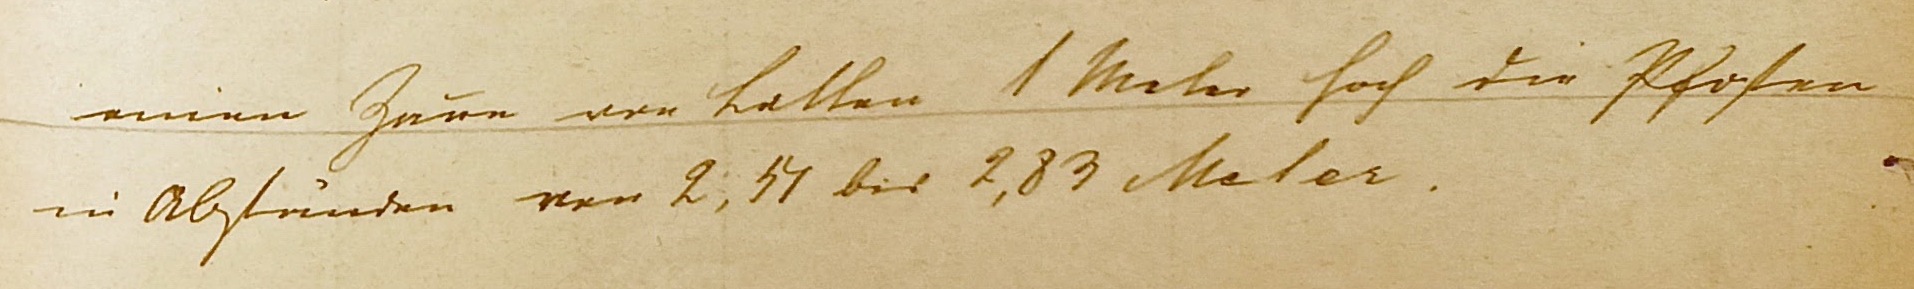 einen Zaun von Latten 1 Meter hoch die Pfosten
in Abständen von 2,51 bis 2,83 Meter.